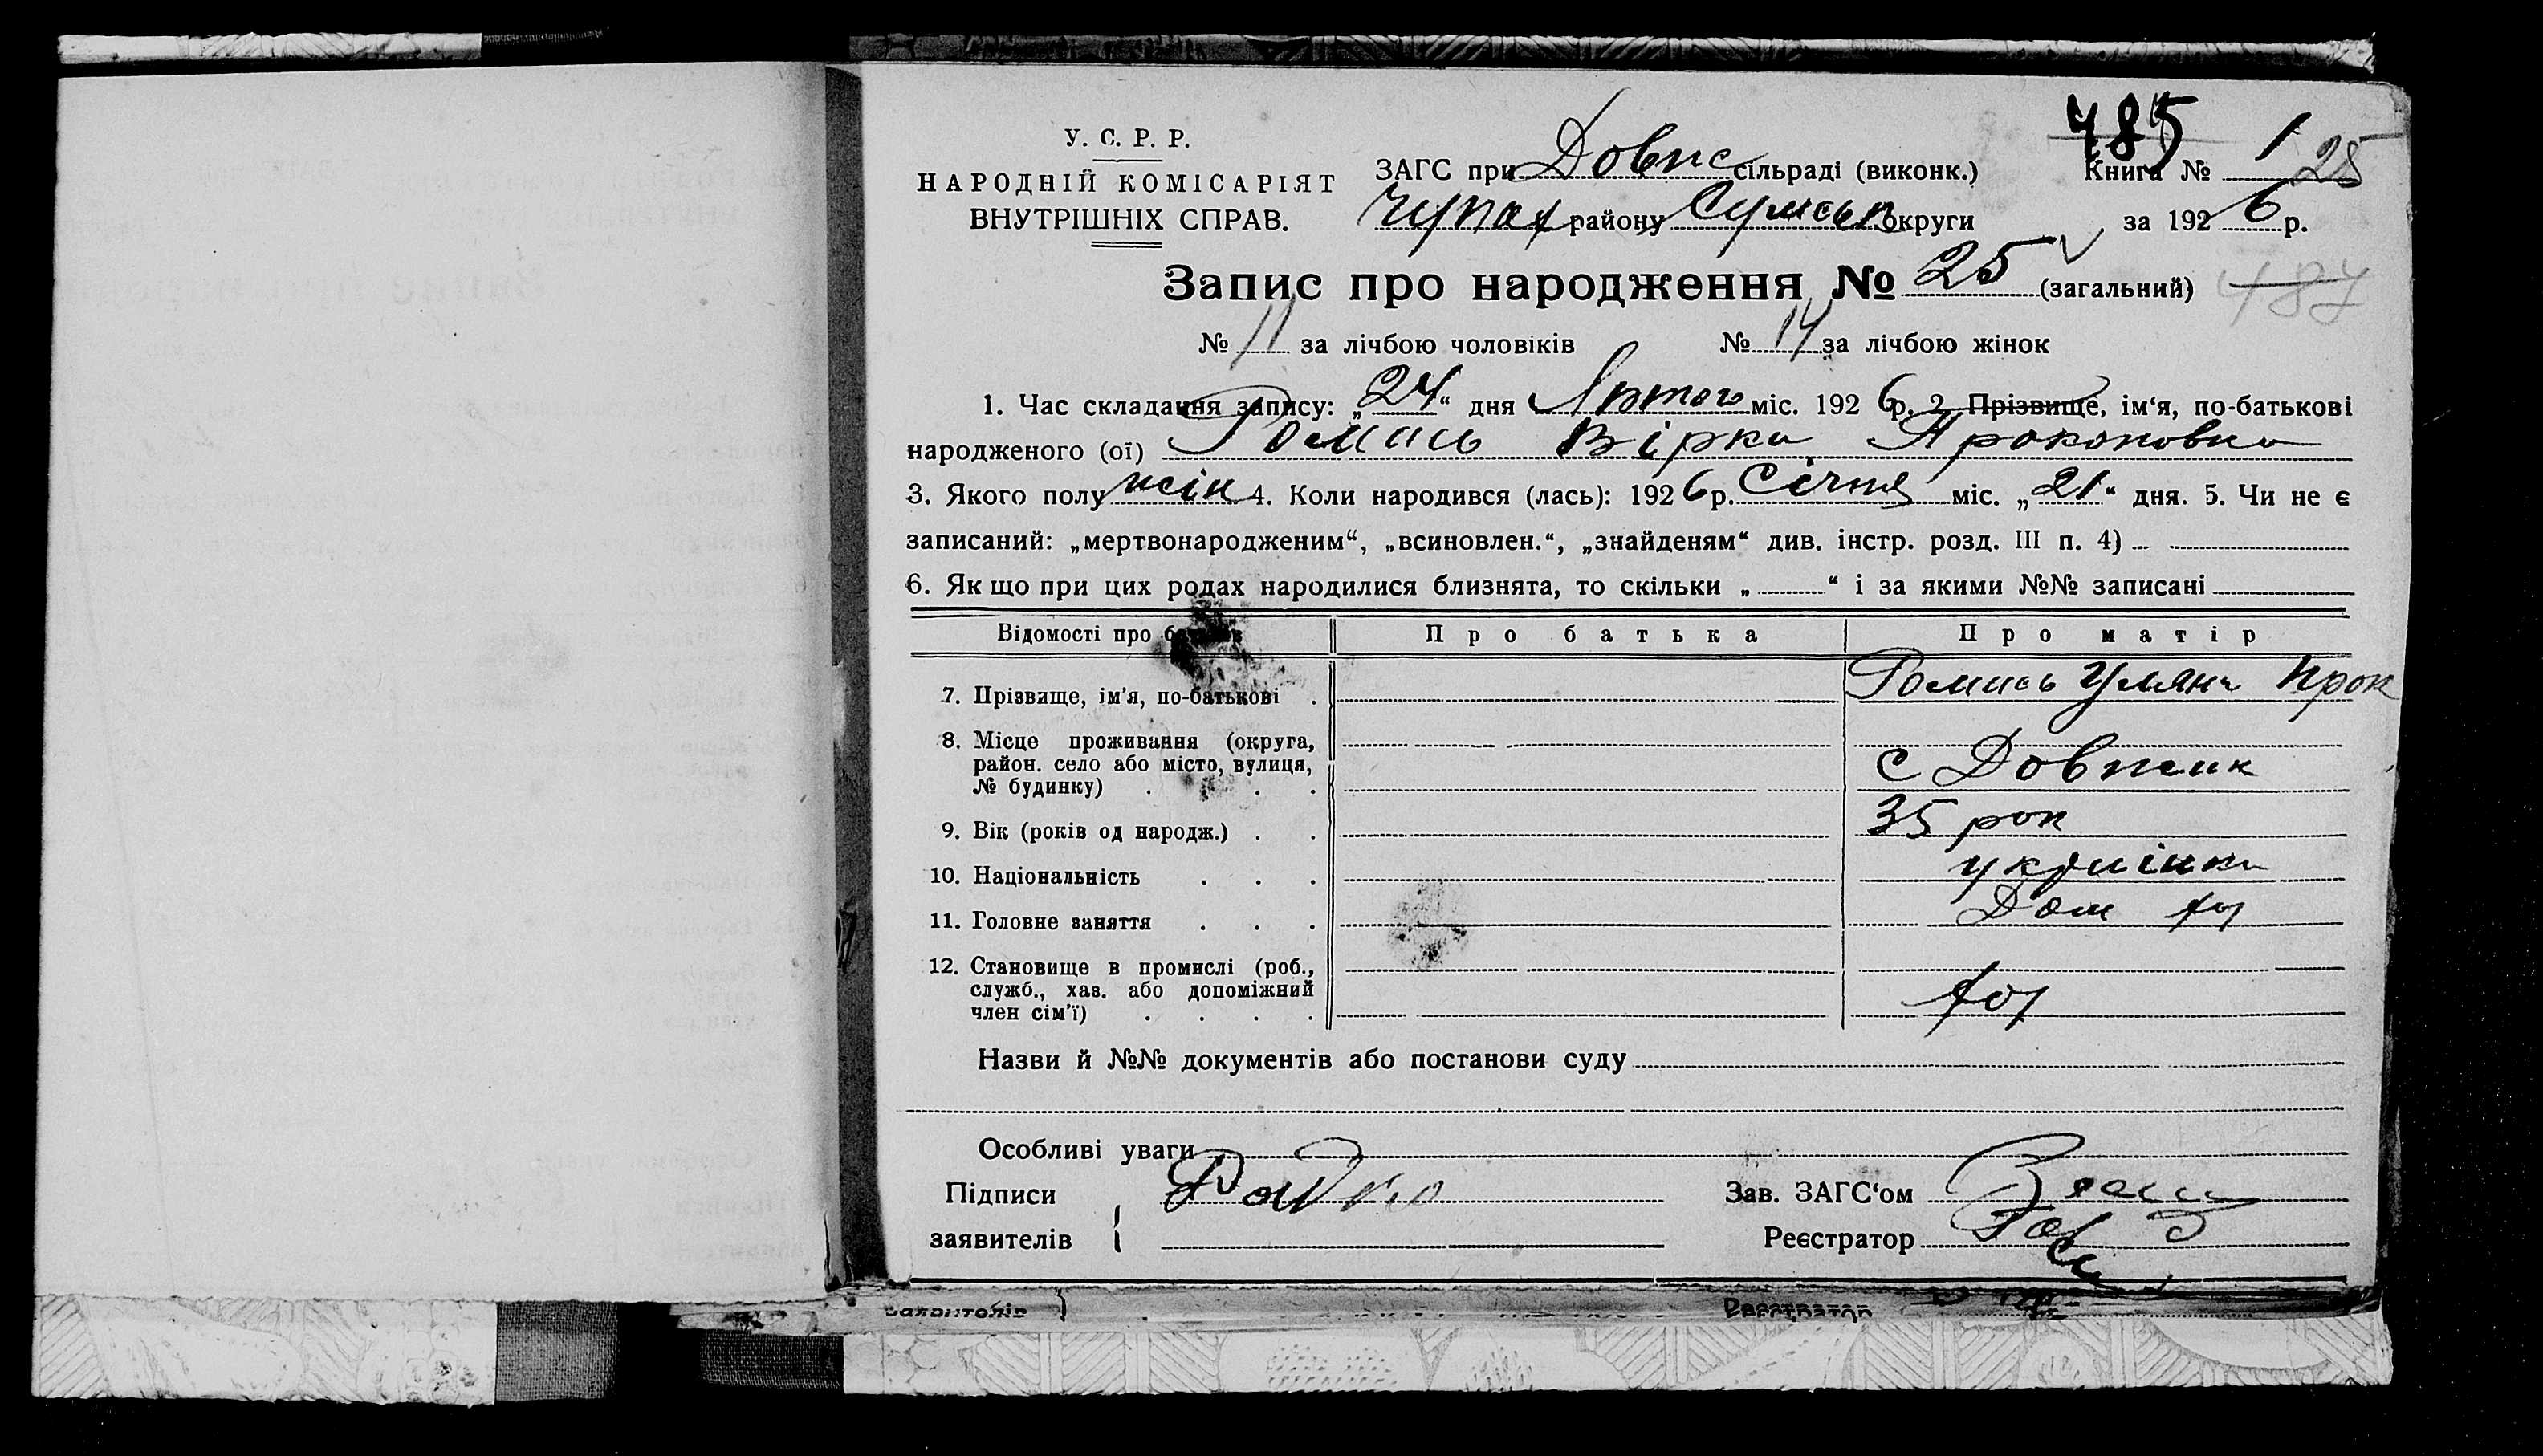 485
У. С. Р. Р.
НАРОДНІЙ КОМІСАРІЯТ
ВНУТРІШНІХ СПРАВ.
ЗАГС при Довж сільраді (виконк.)
Книга № 1 25
Чупах району Сумськ округи
за 1926 р.
Запис про народження № 25 (загальний) 487
№ 11 за лічбою чоловіків № 14 за лічбою жінок
1. Час складання запису: „24“ дня Лютого міс. 1926 р. 2. Прізвище, ім‘я, по-батькові
народженого (ої) Ромась Вірка Прокоповна
3. Якого полу жін 4. Коли народився (лась): 1926 р. Січня міс. „21“ дня. 5. Чи не є
записаний: „мертвонародженим“, „всиновлен.“, „знайденям“ див. інстр. розд. III п. 4)
6. Як що при цих родах народилися близнята, то скільки „ “ і за якими №№ записані
Відомості про батьків Про батька Про матір
7. Прізвище, ім’я, по-батькові . Ромась Уляна Прок
8. Місце проживання (округа,
район. село або місто, вулиця,
№ будинку) . . . с Довжик
9. Вік (років од народж.) . . 35 рок
10. Національність . . . українка
11. Головне заняття . . . Дом хоз
12. Становище в промислі (роб.,
служб., хаз. або допоміжний
член сім’ї) . . . . хоз
Назви й №№ документів або постанови суду
Особливі уваги
Підписи
заявителів
Зав. ЗАГС‘ом
Реєстратор
заявителів
Реєстратор